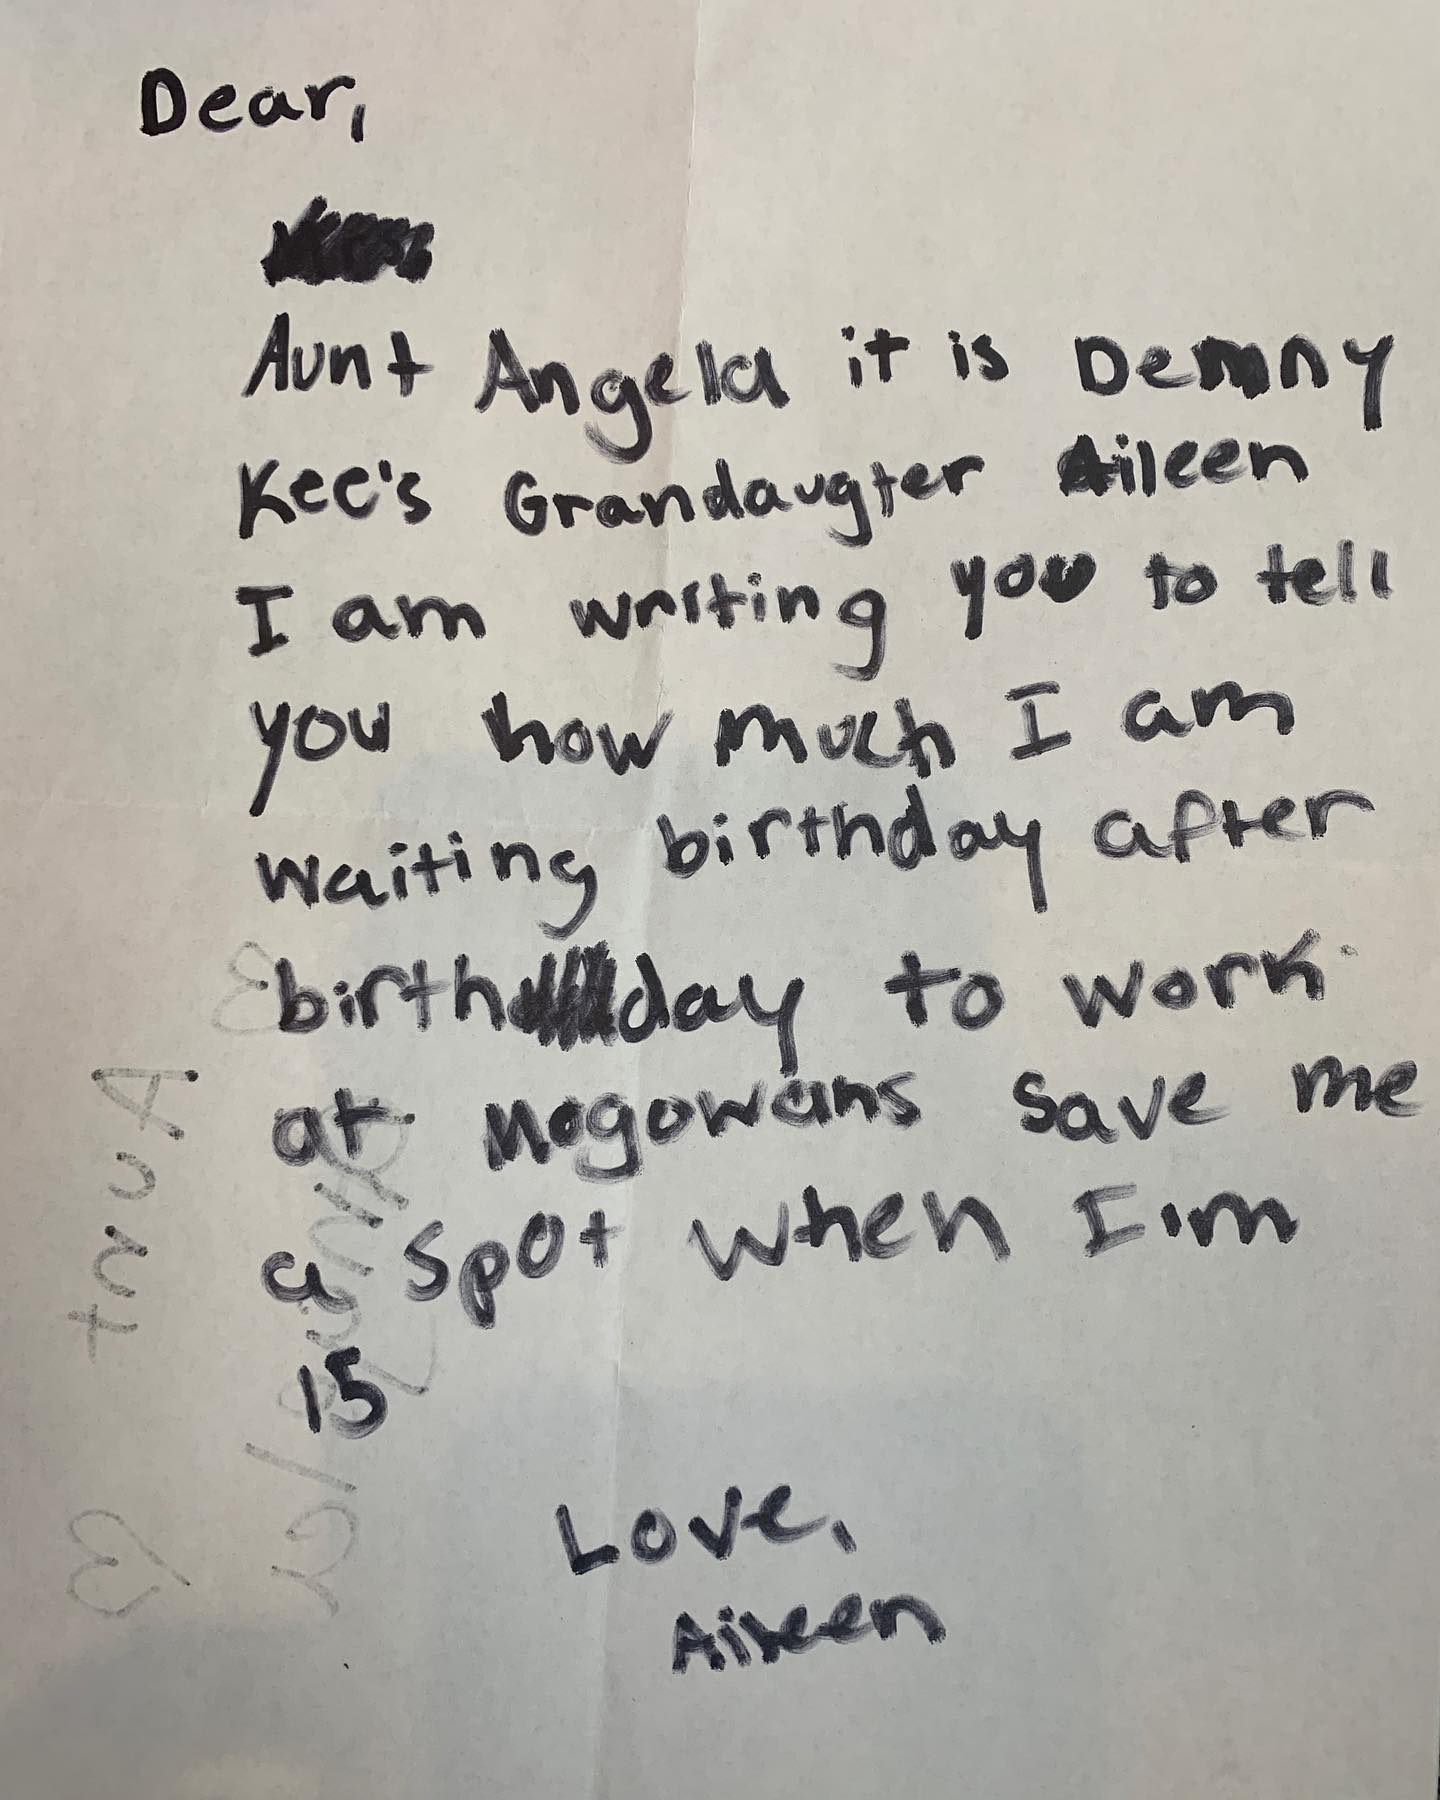 Dear,
Aunt Angela it is Denny
Kee's Grandaugter Aileen
I am writing you to tell
you how much I am
waiting birthday after
birthday to work
at Mcgowans save me
a spot when I'm
15
Love,
Aileen
Aunt